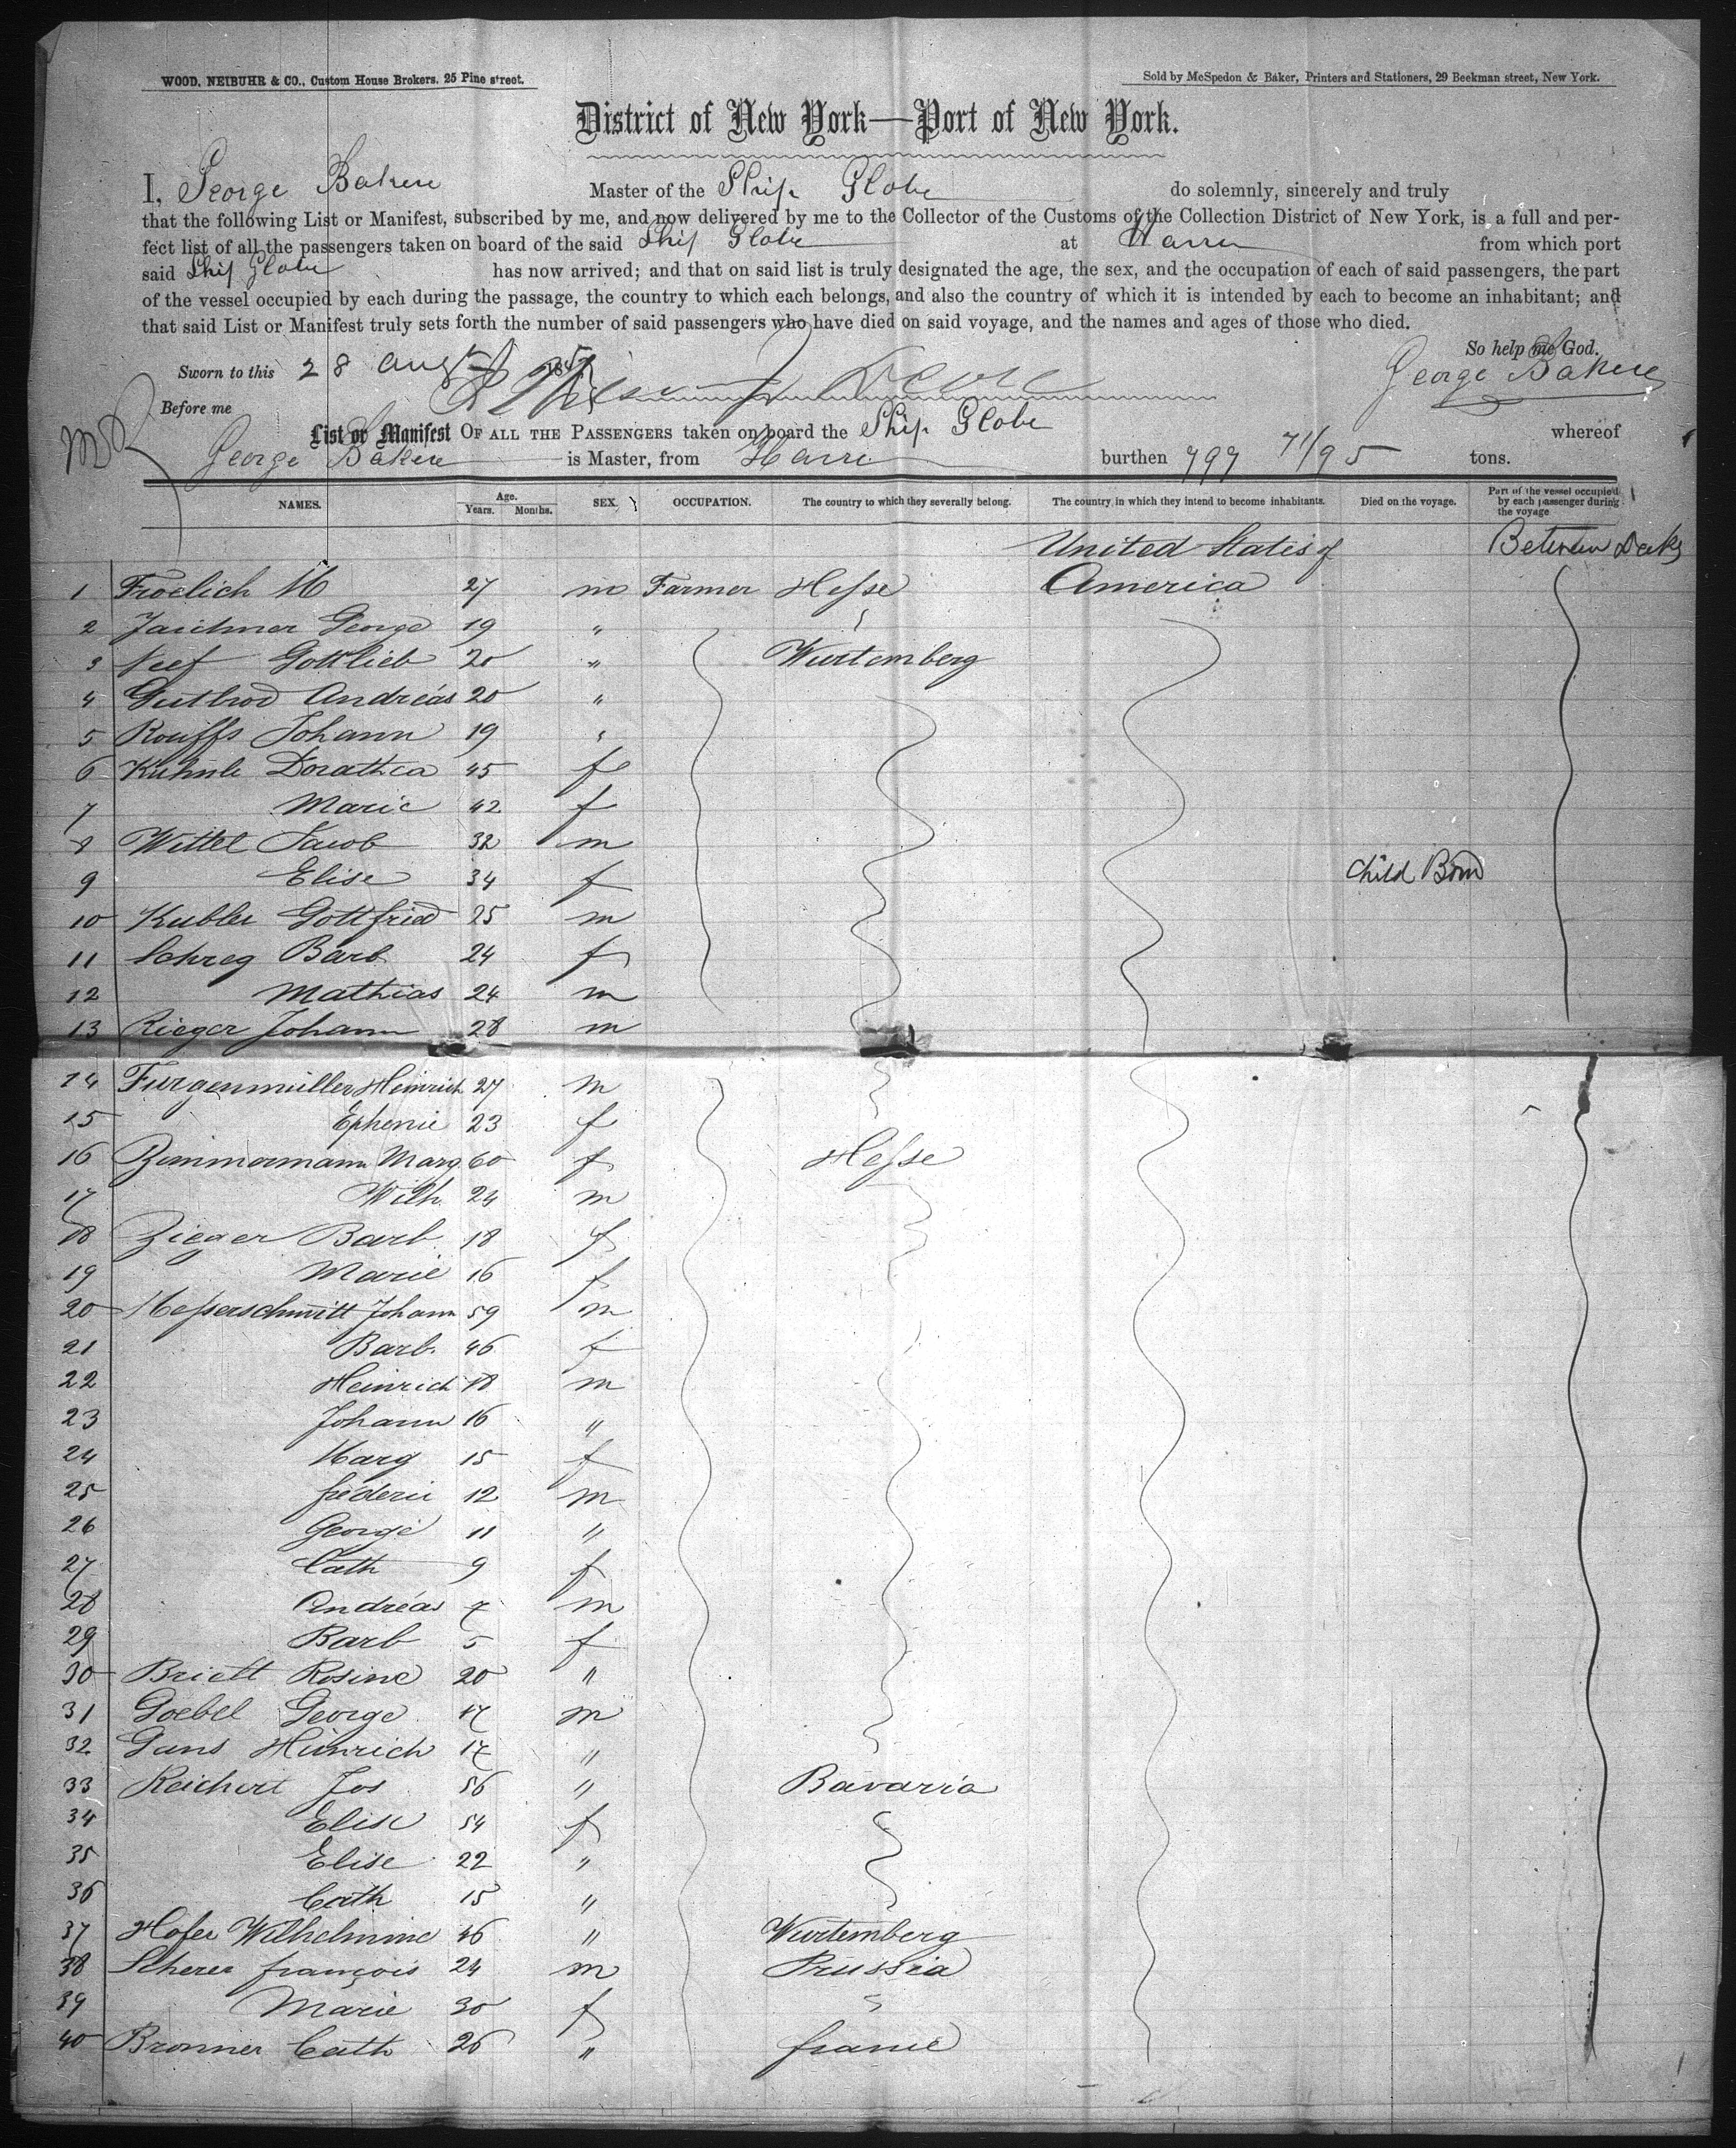 WOOD, NEIBUHR & CO., Custom House Brokers. 25 Pine street.
Sold by McSpedon & Baker, Printers and Stationers, 29 Beekman street, New York.
District of New York—Port of New York.
I, George Baker Master of the Ship Globe do solemnly, sincerely and truly
that the following List or Manifest, subscribed by me, and now delivered by me to the Collector of the Customs of the Collection District of New York, is a full and per-
fect list of all the passengers taken on board of the said Ship Globe at Havre from which port
said Ship Globe has now arrived; and that on said list is truly designated the age, the sex, and the occupation of each of said passengers, the part
of the vessel occupied by each during the passage, the country to which each belongs, and also the country of which it is intended by each to become an inhabitant; and
that said List or Manifest truly sets forth the number of said passengers who have died on said voyage, and the names and ages of those who died.
So help me God.
Sworn to this 28 Augt
George Baker
Before me
List or Manifest OF ALL THE PASSENGERS taken on board the Ship Globe whereof
George Baker is Master, from Havre burthen 797 71/95 tons.
NAMES. Age. Years. Months. SEX. OCCUPATION. The country to which they severally belong. The country in which they intend to become inhabitants. Died on the voyage. Part of the vessel occupied by each passenger during the voyage
United States of Between Decks
1 Froelich M 27 m Farmer Hesse America
2 Jaichner George 19 "
3 Neef Gottlieb 20 " Wurtemberg
4 Gutbrod Andréas 20 "
5 Rouffs Johann 19 "
6 Kuhnle Dorathea 45 f
7 Marie 42 f
8 Wittel Jacob 32 m
9 Elise 34 f Child Born
10 Kubler Gottfried 25 m
11 Schreg Barb 24 f
12 Mathias 24 m
13 Rieger Johann 28 m
14 Furgenmüller Heinrich 27 m
15 Ephenie 23 f
16 Zimmermann Marg 60 f Hesse
17 Wilh. 24 m
18 Zieger Barb 18 f
19 Marie 16 f
20 Messerschmitt Johann 59 m
21 Barb. 46 f
22 Heinrich 18 m
23 Johann 16 "
24 Marg 15 f
25 fréderic 12 m
26 George 11 "
27 Cath 9 f
28 Andréas 7 m
29 Barb 5 f
30 Briett Rosine 20 "
31 Goebel George 17 m
32 Gans Heinrich 17 "
33 Reichert Jos 56 " Bavaria
34 Elise 54 f
35 Elise 22 "
36 Cath 15 "
37 Hofer Wilhelmine 46 " Wurtemberg
38 Scherer françois 24 m Prussia
39 Marie 30 f "
40 Bronner Cath 26 " france